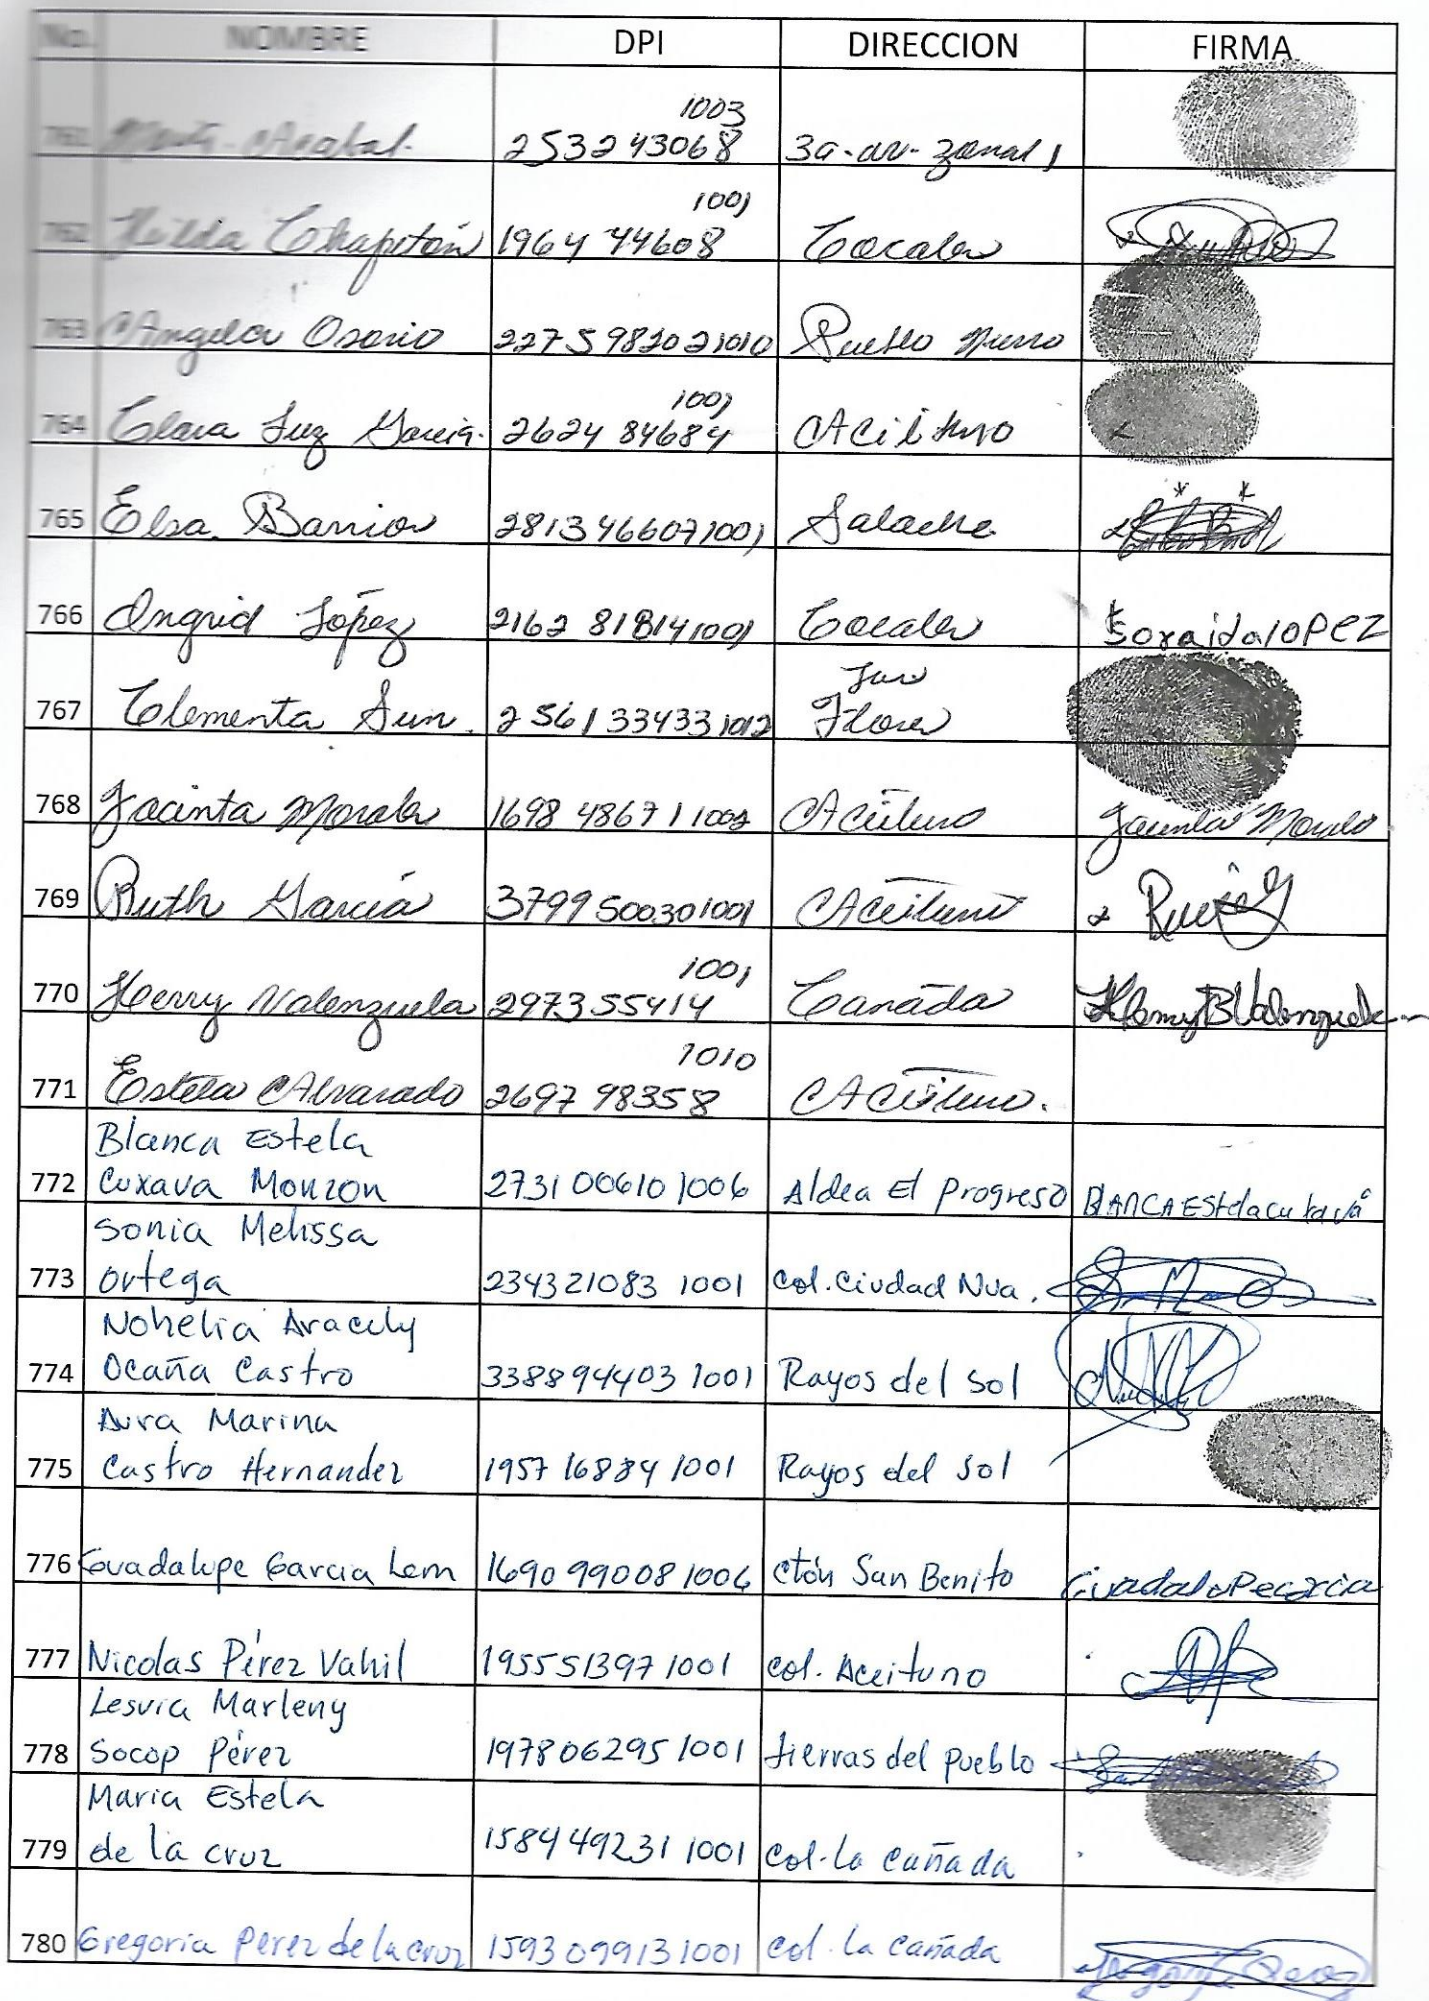 No. NOMBRE DPI DIRECCION FIRMA
1003
761 Acabal. 253243068 3a-av-zona 1
1001
762 Hilda Chapetón 1964 44608 Cocales
763 Angela Osorio 2275982021010 Pueblo Nuevo
1001
764 Clara Luz García. 2624 84684 Aceituno
765 Elsa Barrios 2813466071001 Salache
766 Ingrid López 2162 818141001 Cocales Soraida lOPEZ
767 Clementa Sun. 2561334331012 Las
Flores
768 Jacinta Morales 1698 486711002 Aceituno Jacinta Morales
769 Ruth García 3799500301001 Aceituno
1001
770 Henry Valenzuela 297355414 Canáda Henry B Valenzuela
1010
771 Estela Alvarado 2697 98358 Aceituno.
Blanca Estela
772 Cuxava Monzon 2731 00610 1006 Aldea El Progreso BlANCA EStela cuxavá
Sonia Melissa
773 Ortega 234321083 1001 Col. Ciudad Nva.
Nohelia Aracely
774 Ocaña Castro 338894403 1001 Rayos del Sol
Aura Marina
775 Castro Hernandez 1957 16884 1001 Rayos del Sol
776 Guadalupe Garcia Lem 1690 99008 1006 Ctón San Benito
777 Nicolas Pérez Vahil 195551397 1001 Col. Aceituno
Lesvia Marleny
778 Socop Pérez 197806295 1001 tierras del Pueblo
Maria Estela
779 de la cruz 158449231 1001 Col. la Cañada
780 Gregoria Perez de la cruz 159309913 1001 Col. la Cañada